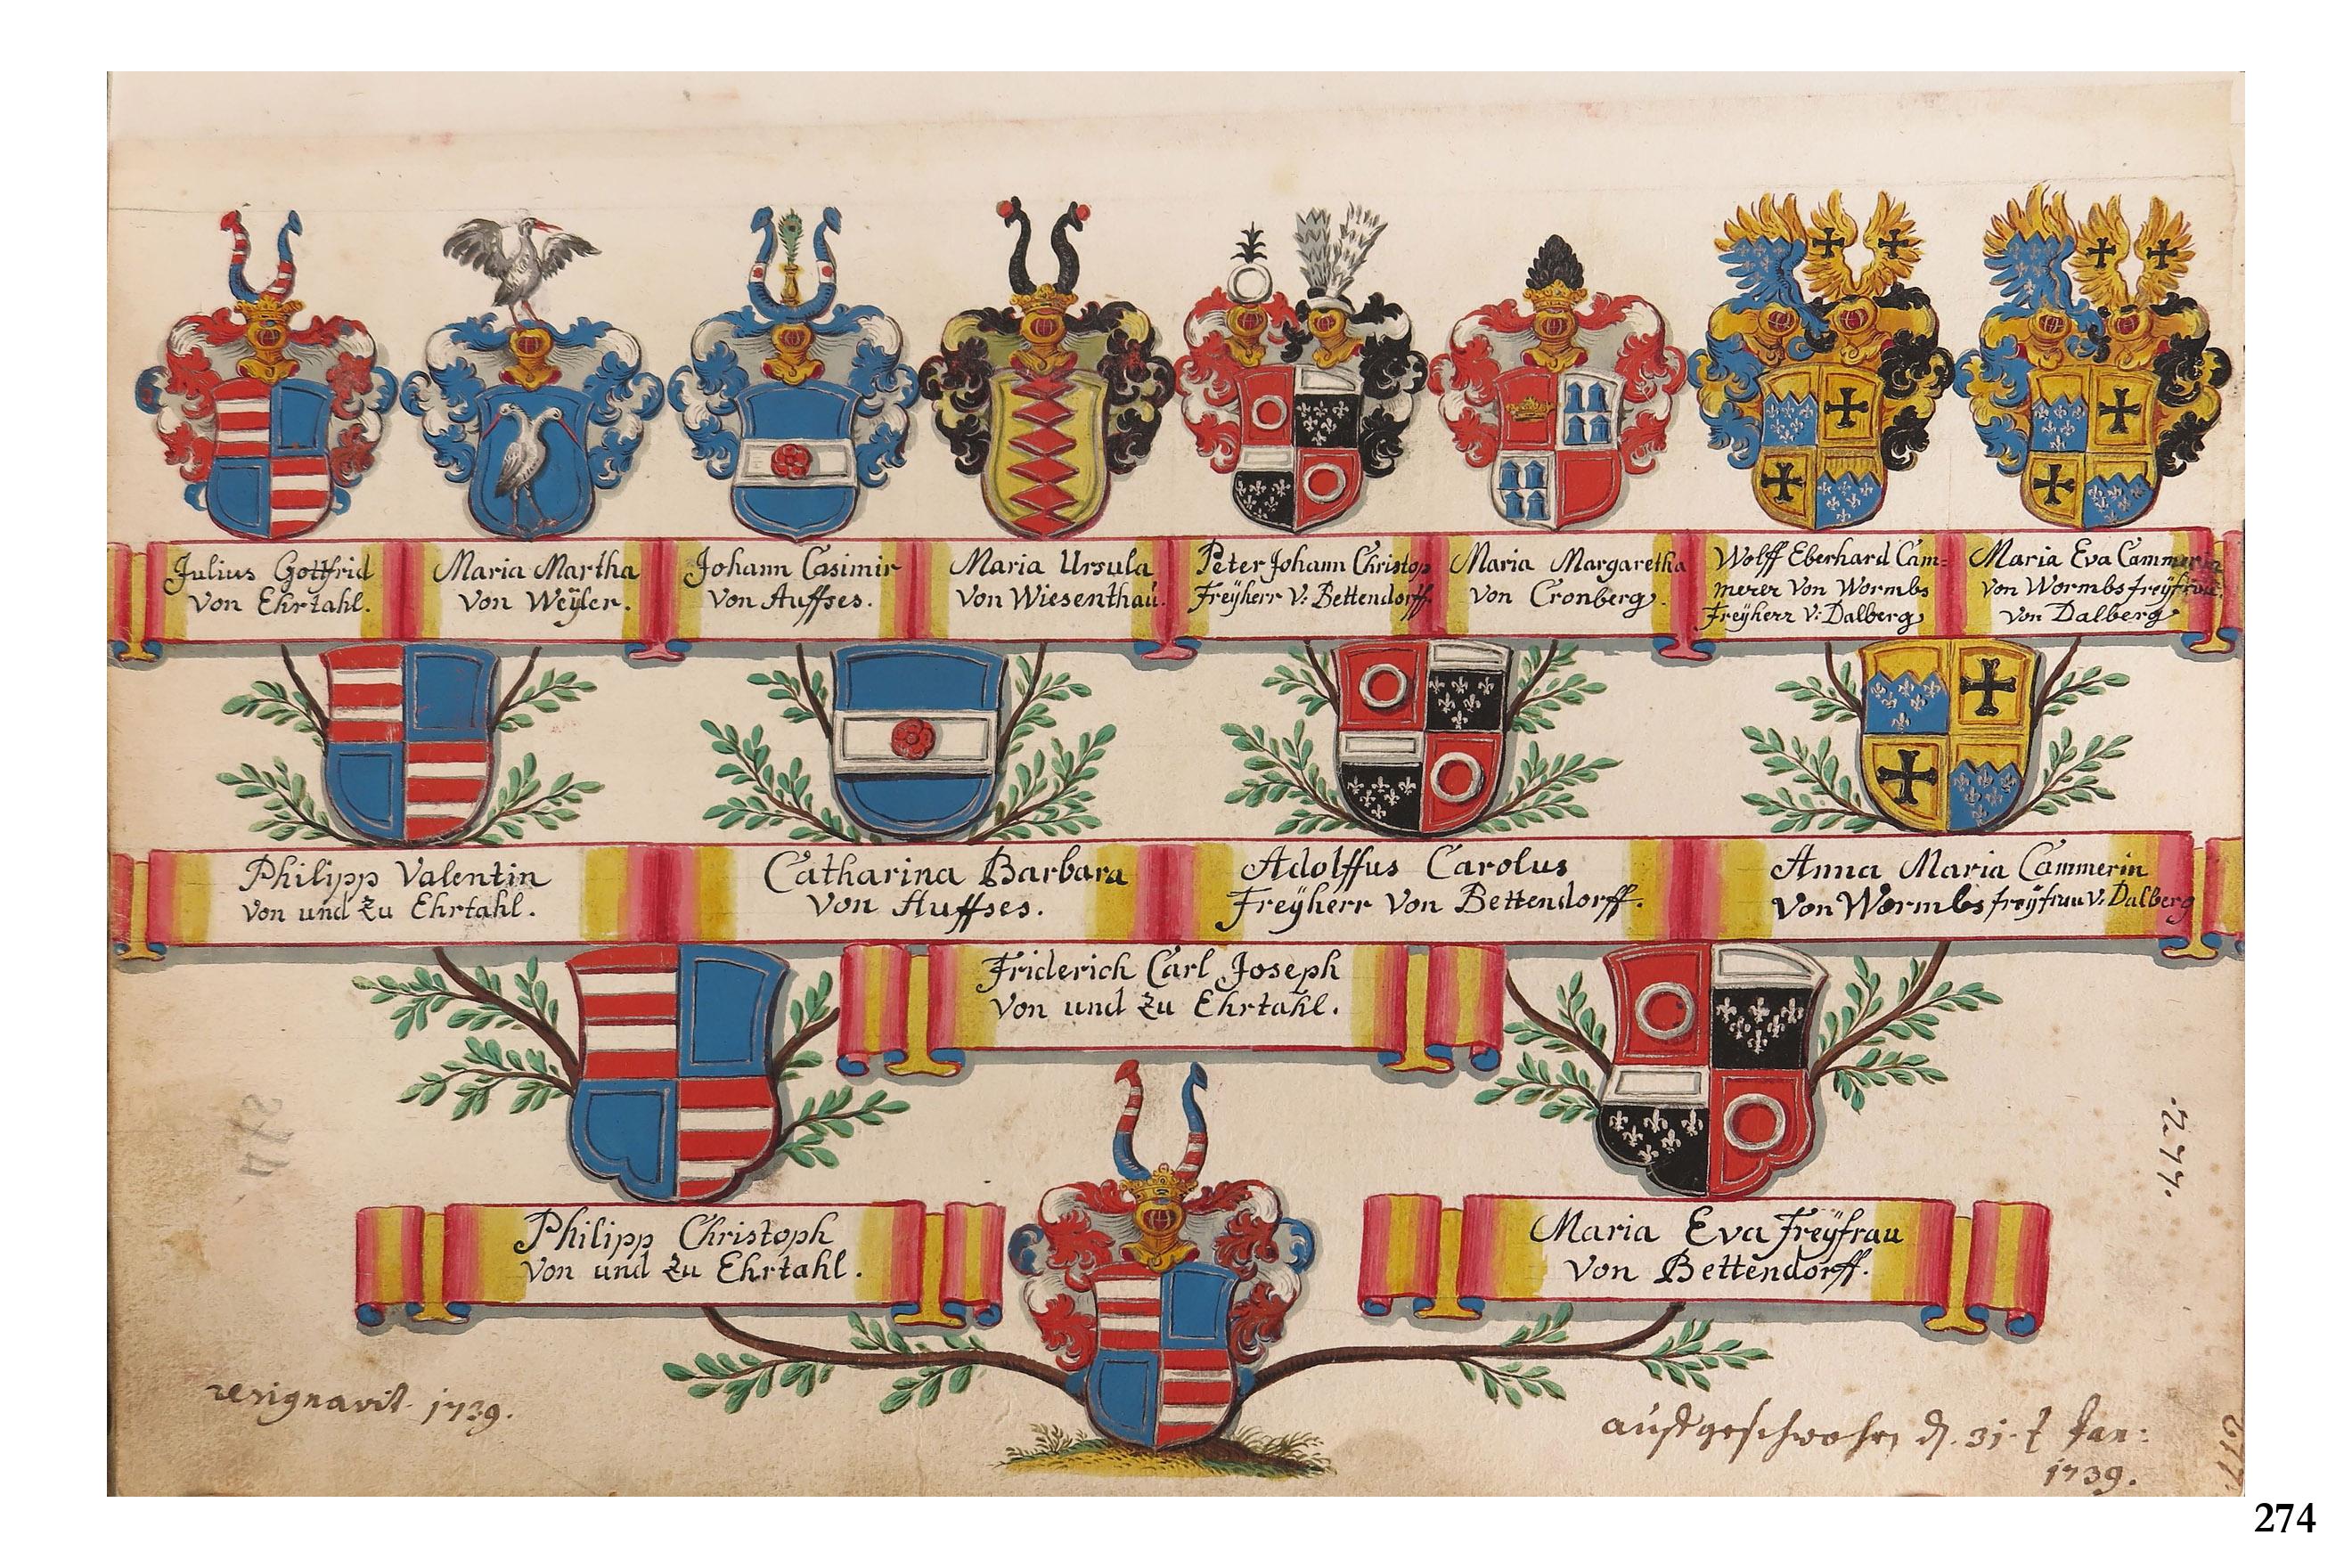 Julius Gottfrid
Von Ehrtahl.
Maria Martha
Von Weÿler.
Johann Casimir
Von Auffses.
Maria Ursula
Von Wiesenthaú.
Peter Johann Christop
Freÿherr V: Bettendorff.
Maria Margaretha
von Cronberg.
Wolff Eberhard Cam=
merer Von Wormbs
Freÿherr V: Dalberg
Maria Eva Cammerin
von Wormbs freÿfrau
von Dalberg
Philipp Valentin
Von und Zu Ehrtahl.
Catharina Barbara
Von Auffses.
Adolffus Carolus
Freÿherr Von Bettendorff.
Anna Maria Cammerin
Von Wormbs freÿfrau V: Dalberg
Friderich Carl Joseph
Von und Zu Ehrtahl.
Philipp Christoph
Von und Zu Ehrtahl.
Maria Eva Freÿfrau
Von Bettendorff.
resignavit 1739.
aufgeschwohren d. 31.t Jan:
1739.
·277.
274